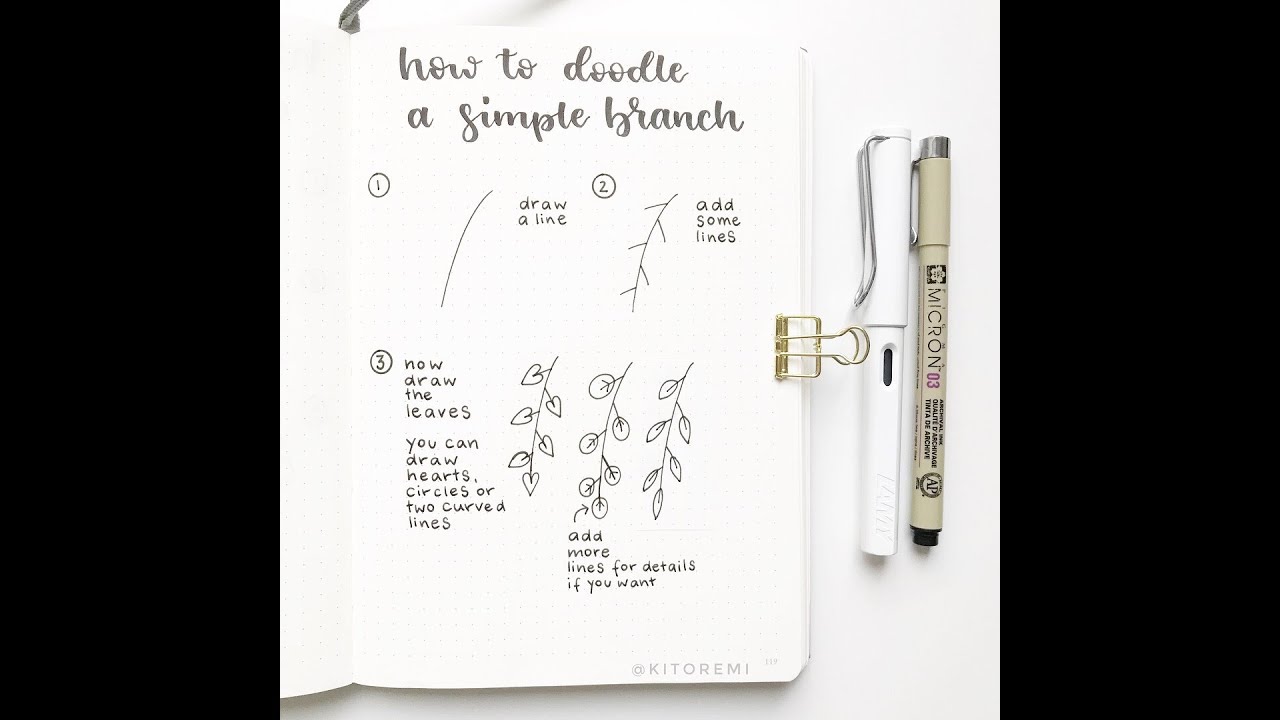 how to doodle
a simple branch
1
draw
a line
2
add
some
lines
3
now
draw
the
leaves
you can
draw
hearts,
circles or
two curved
lines
add
more
lines for details
if you want
@KITOREMI
119
LAMY
PIGMA
MICRON™ 03
ARCHIVAL INK
QUALITÉ D'ARCHIVAGE
TINTA DE ARCHIVE
AP